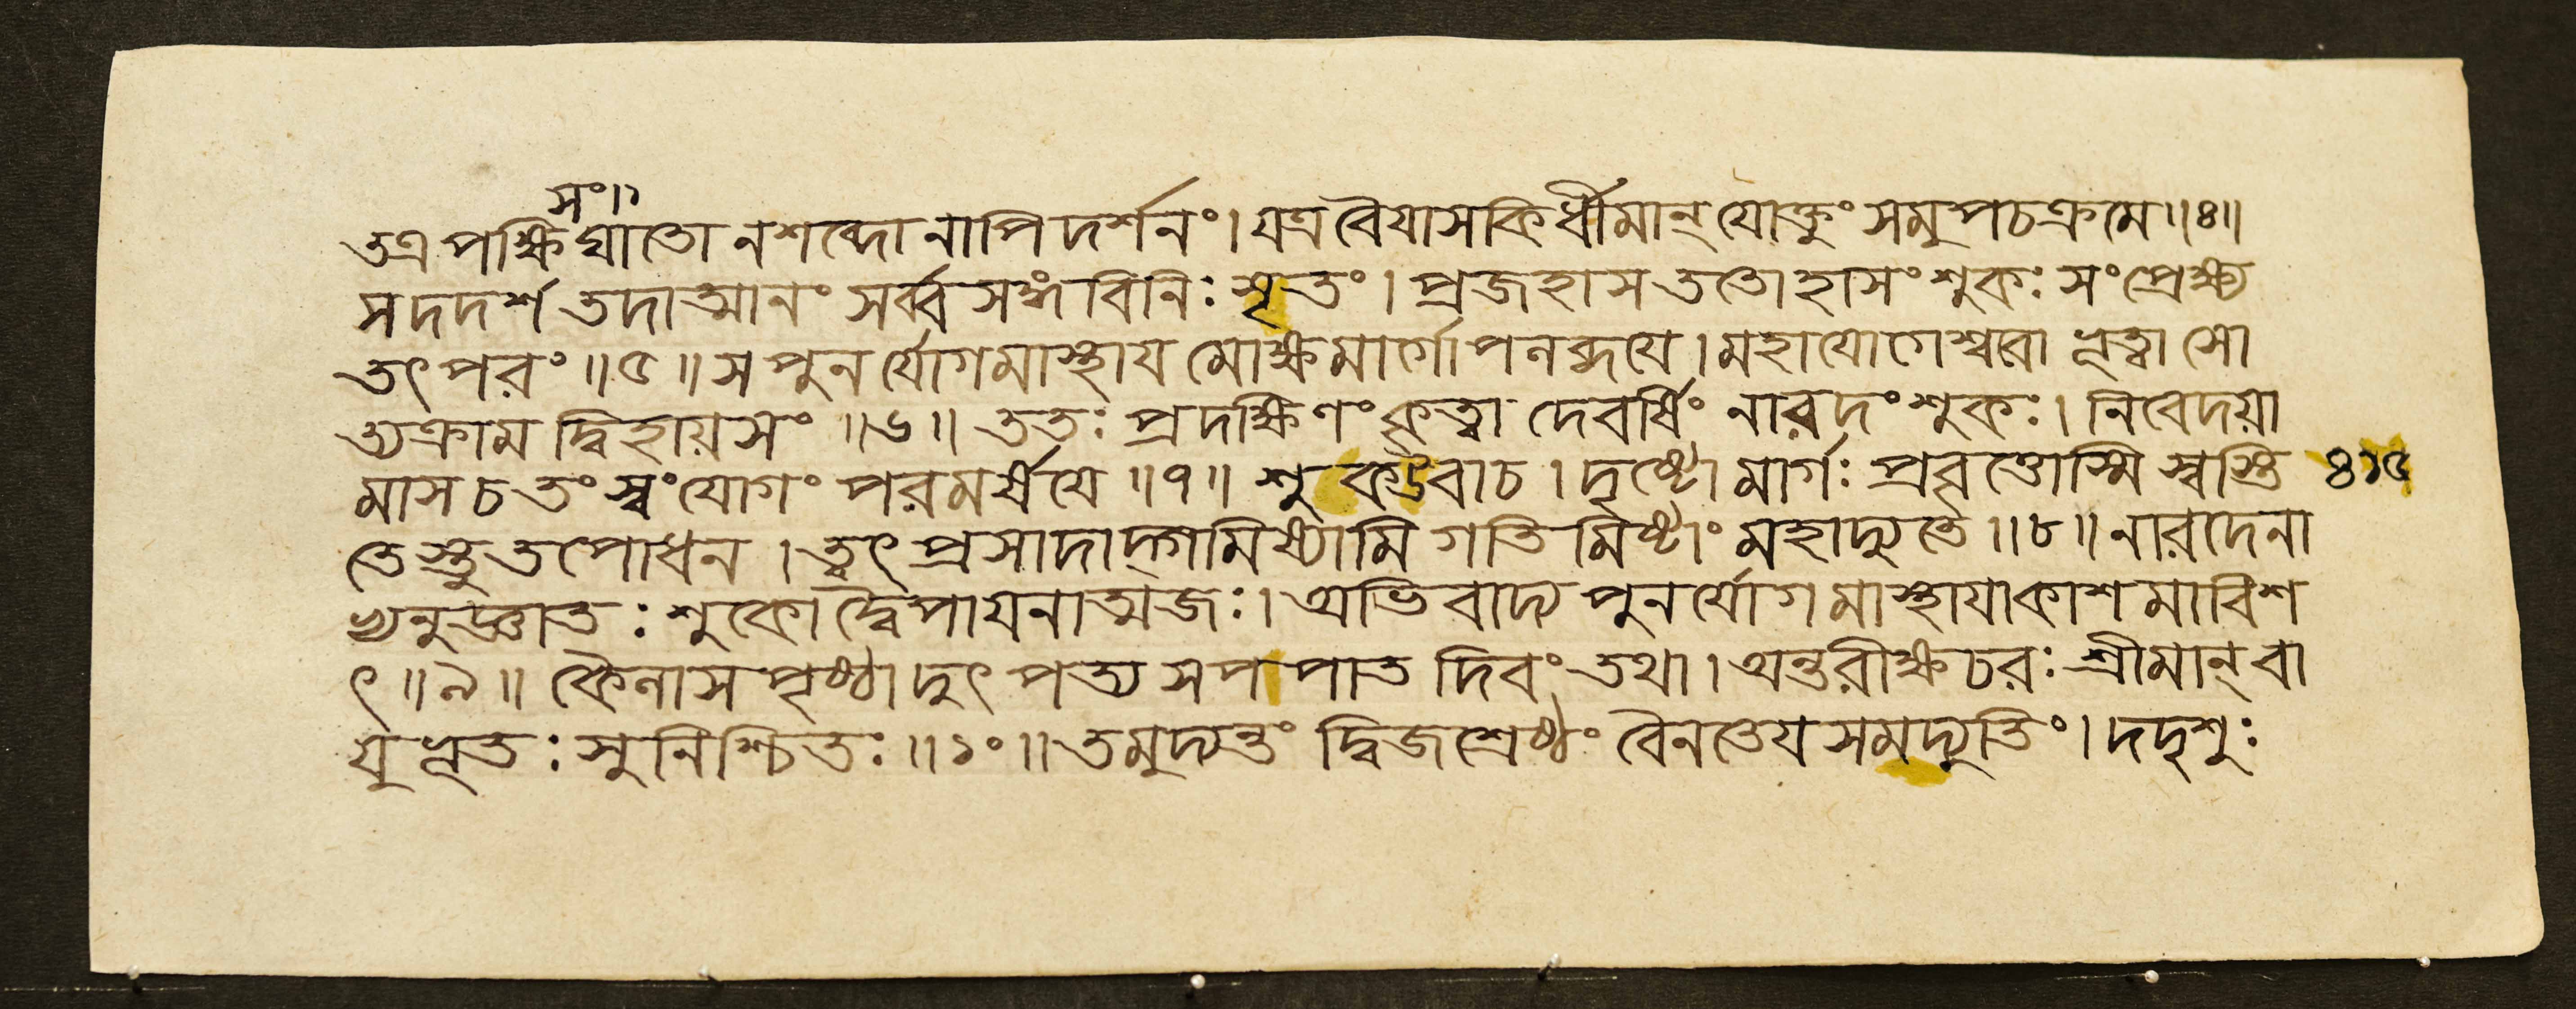 সং।১
তত্র পক্ষিঘাতো ন শব্দো নাপি দর্শনং। যত্র বৈযাসকির্ধীমান্ যোক্তুং সমুপচক্রমে॥৪॥
স দদর্শ তদাত্মানং সর্ব্বসঙ্গবিনিঃসৃতং। প্রজহাস ততো হাসং শুকঃ সংপ্রেক্ষ্য
তৎপরং॥৫॥ স পুনর্যোগমাস্থায মোক্ষমার্গোপলব্ধযে। মহাযোগেশ্বরো ভূত্বা সো
ত্যক্রামদ্বিহায়সং॥৬॥ ততঃ প্রদক্ষিণং কৃত্বা দেবর্ষিং নারদং শুকঃ। নিবেদয়া
মাস চ তং স্বং যোগং পরমর্ষযে॥৭॥ শুক উবাচ। দৃষ্টো মার্গঃ প্রবৃত্তোস্মি স্বস্তি ৪১৫
তেস্তু তপোধন। ত্বৎপ্রসাদাদ্গমিষ্যামি গতিমিষ্টাং মহাদ্যুতে॥৮॥ নারদেনা
ভ্যনুজ্ঞাতঃ শুকো দ্বৈপাযনাত্মজঃ। অভিবাদ্য পুনর্যোগমাস্থাযাকাশমাবিশ
ৎ॥৯॥ কৈলাসপৃষ্ঠাদুৎপত্য স পপাত দিবং তথা। অন্তরীক্ষচরঃ শ্রীমান্ বা
যুভূতঃ সুনিশ্চিতঃ॥১০॥ তমুদ্যন্তং দ্বিজশ্রেষ্ঠং বৈনতেযসমদ্যুতিং। দদৃশুঃ